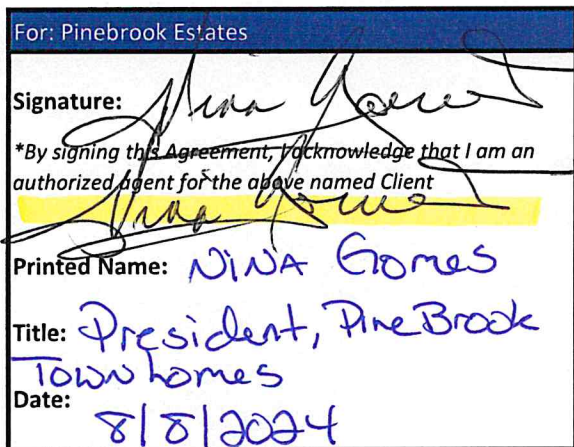 For: Pinebrook Estates
Signature: Nina Gomes
*By signing this Agreement, I acknowledge that I am an
authorized agent for the above named Client
Nina Gomes
Printed Name: NiNA Gomes
Title: President, PineBrook
Townhomes
Date:
8/8/2024